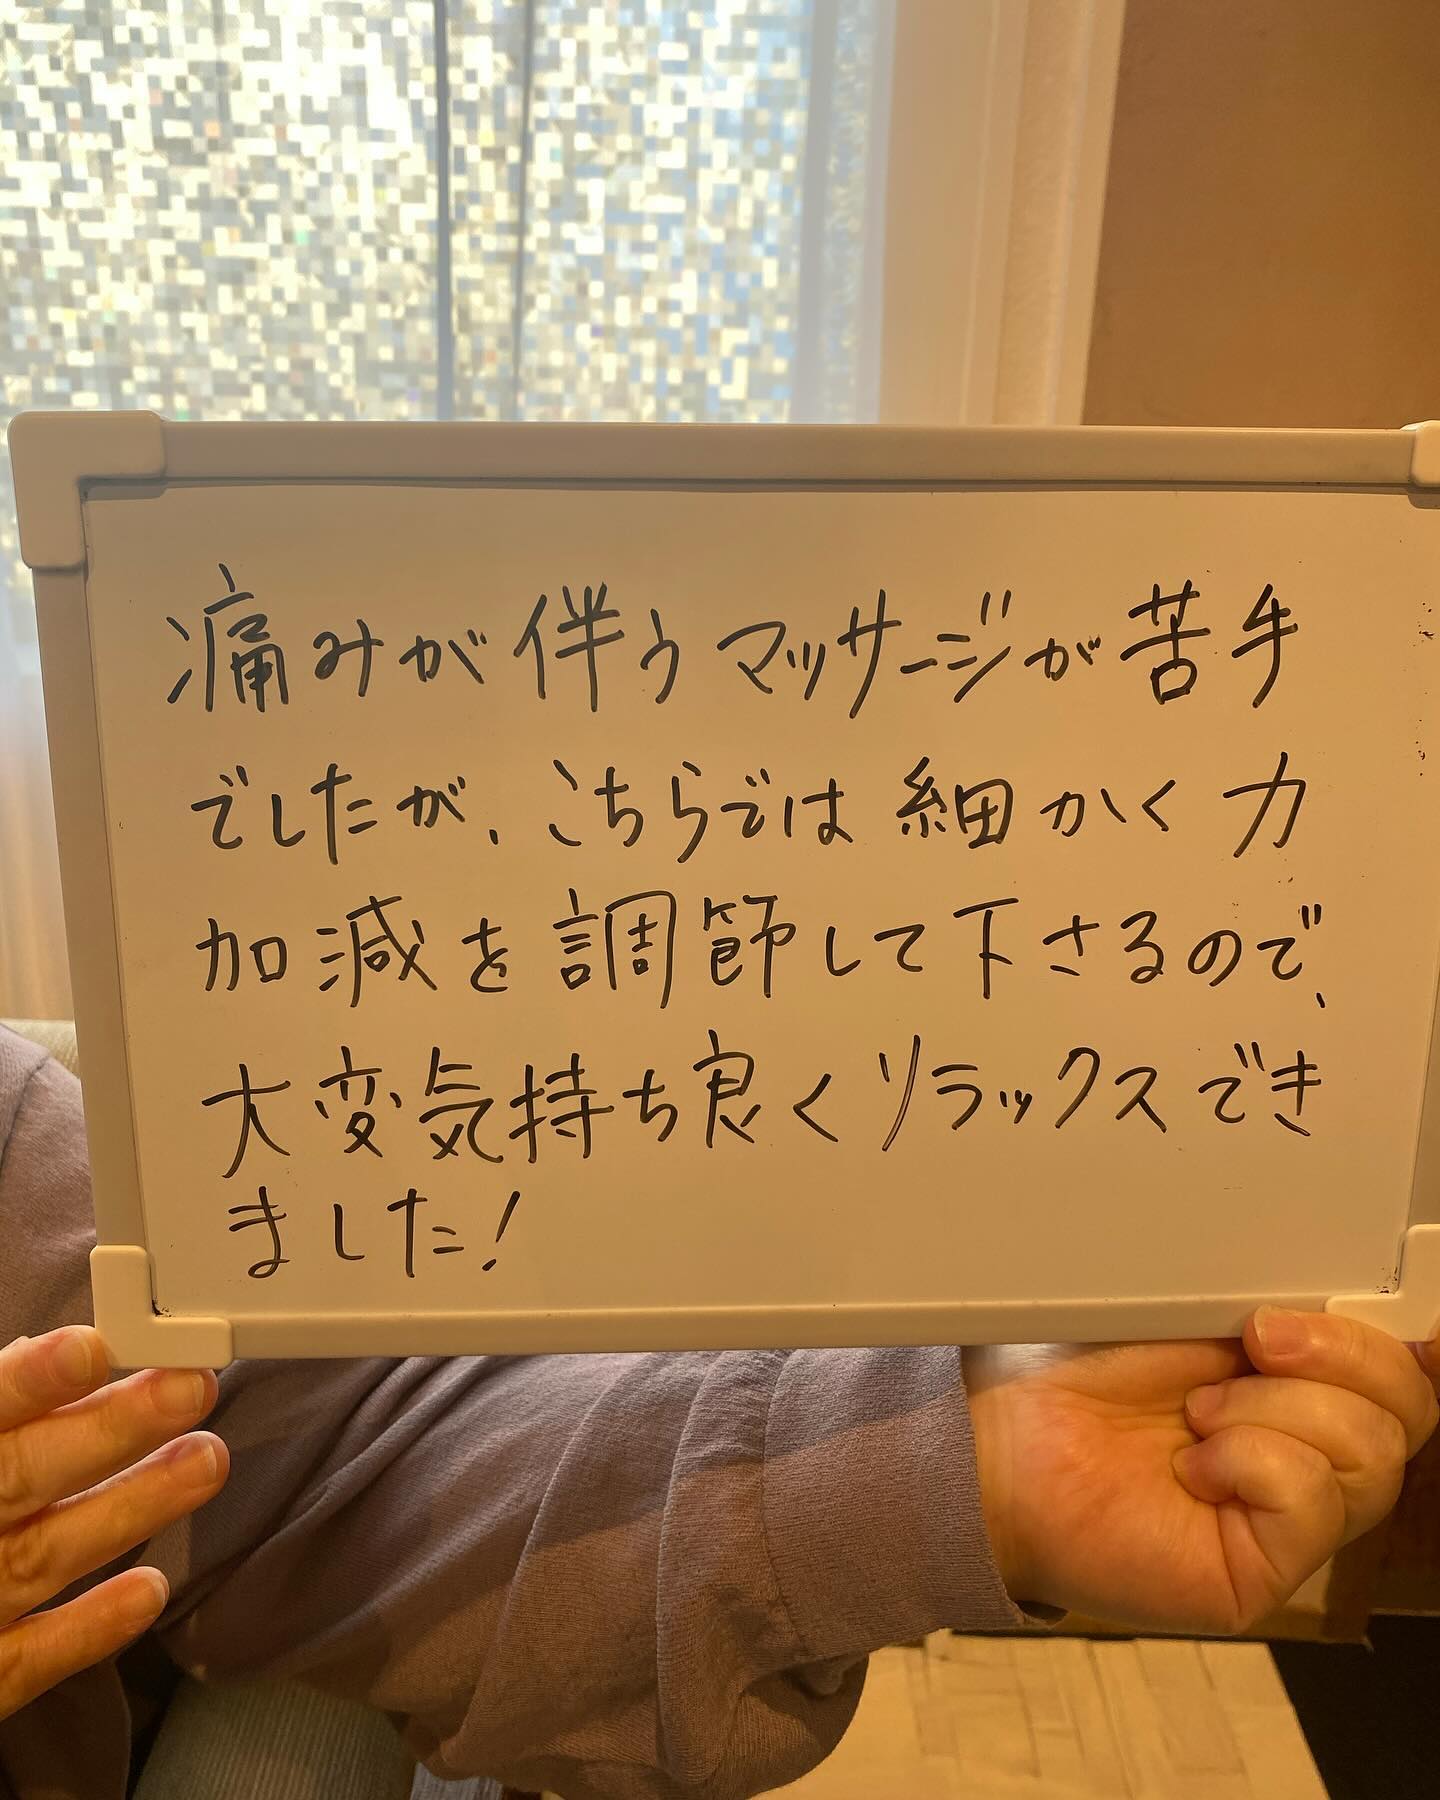 痛みが伴うマッサージが苦手
でしたが、こちらでは細かく力
加減を調節して下さるので、
大変気持ち良くリラックスでき
ました!